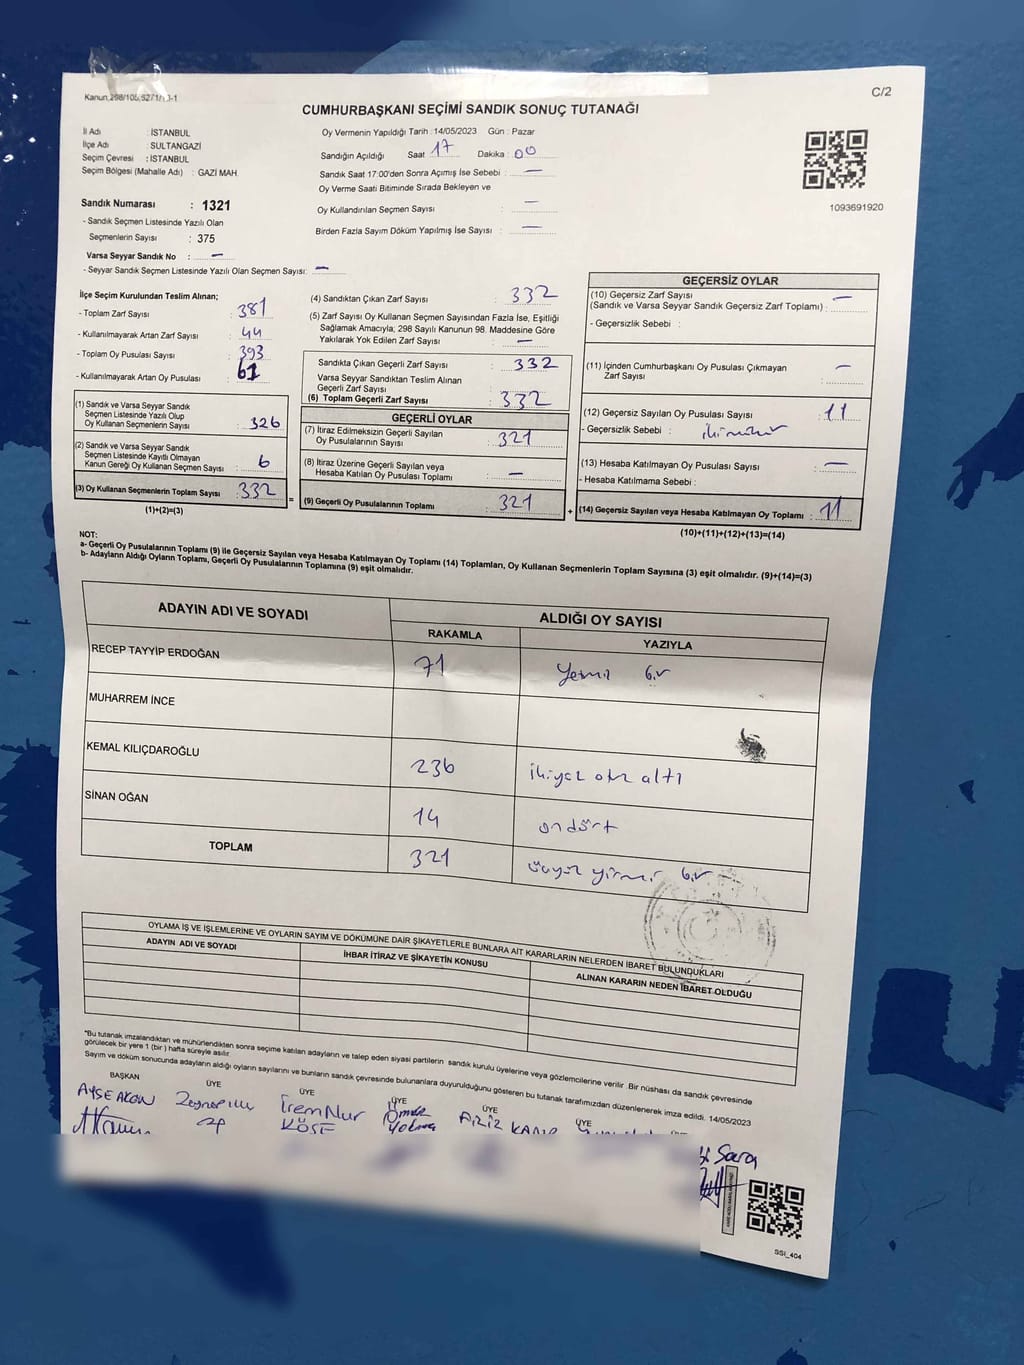 Kanun,298/106,5271/13-1
C/2
CUMHURBAŞKANI SEÇİMİ SANDIK SONUÇ TUTANAĞI
İl Adı : İSTANBUL
İlçe Adı : SULTANGAZİ
Seçim Çevresi : İSTANBUL
Seçim Bölgesi (Mahalle Adı) : GAZİ MAH.
Sandık Numarası : 1321
- Sandık Seçmen Listesinde Yazılı Olan
Seçmenlerin Sayısı : 375
Varsa Seyyar Sandık No : —
- Seyyar Sandık Seçmen Listesinde Yazılı Olan Seçmen Sayısı: —
Oy Vermenin Yapıldığı Tarih : 14/05/2023 Gün : Pazar
Sandığın Açıldığı Saat 17 Dakika : 00
Sandık Saat 17:00'den Sonra Açımış İse Sebebi : —
Oy Verme Saati Bitiminde Sırada Bekleyen ve
Oy Kullandırılan Seçmen Sayısı : —
Birden Fazla Sayım Döküm Yapılmış İse Sayısı : —
1093691920
İlçe Seçim Kurulundan Teslim Alınan;
- Toplam Zarf Sayısı : 381
- Kullanılmayarak Artan Zarf Sayısı : 44
- Toplam Oy Pusulası Sayısı : 393
- Kullanılmayarak Artan Oy Pusulası : 61
(1) Sandık ve Varsa Seyyar Sandık
Seçmen Listesinde Yazılı Olup
Oy Kullanan Seçmenlerin Sayısı : 326
(2) Sandık ve Varsa Seyyar Sandık
Seçmen Listesinde Kayıtlı Olmayan
Kanun Gereği Oy Kullanan Seçmen Sayısı : 6
(3) Oy Kullanan Seçmenlerin Toplam Sayısı : 332
(1)+(2)=(3)
(4) Sandıktan Çıkan Zarf Sayısı : 332
(5) Zarf Sayısı Oy Kullanan Seçmen Sayısından Fazla İse, Eşitliği
Sağlamak Amacıyla; 298 Sayılı Kanunun 98. Maddesine Göre
Yakılarak Yok Edilen Zarf Sayısı : —
Sandıkta Çıkan Geçerli Zarf Sayısı : 332
Varsa Seyyar Sandıktan Teslim Alınan
Geçerli Zarf Sayısı :
(6) Toplam Geçerli Zarf Sayısı : 332
GEÇERLİ OYLAR
(7) İtiraz Edilmeksizin Geçerli Sayılan
Oy Pusulalarının Sayısı : 321
(8) İtiraz Üzerine Geçerli Sayılan veya
Hesaba Katılan Oy Pusulası Toplamı : —
(9) Geçerli Oy Pusulalarının Toplamı : 321
=
+
GEÇERSİZ OYLAR
(10) Geçersiz Zarf Sayısı
(Sandık ve Varsa Seyyar Sandık Geçersiz Zarf Toplamı) : —
- Geçersizlik Sebebi :
(11) İçinden Cumhurbaşkanı Oy Pusulası Çıkmayan
Zarf Sayısı : —
(12) Geçersiz Sayılan Oy Pusulası Sayısı : 11
- Geçersizlik Sebebi :
(13) Hesaba Katılmayan Oy Pusulası Sayısı : —
- Hesaba Katılmama Sebebi :
(14) Geçersiz Sayılan veya Hesaba Katılmayan Oy Toplamı : 11
(10)+(11)+(12)+(13)=(14)
NOT:
a- Geçerli Oy Pusulalarının Toplamı (9) ile Geçersiz Sayılan veya Hesaba Katılmayan Oy Toplamı (14) Toplamları, Oy Kullanan Seçmenlerin Toplam Sayısına (3) eşit olmalıdır. (9)+(14)=(3)
b- Adayların Aldığı Oyların Toplamı, Geçerli Oy Pusulalarının Toplamına (9) eşit olmalıdır.
ADAYIN ADI VE SOYADI
ALDIĞI OY SAYISI
RAKAMLA YAZIYLA
RECEP TAYYİP ERDOĞAN 71 Yetmiş bir
MUHARREM İNCE
KEMAL KILIÇDAROĞLU 236 ikiyüz otuz altı
SİNAN OĞAN 14 ondört
TOPLAM 321 üçyüz yirmi bir
OYLAMA İŞ VE İŞLEMLERİNE VE OYLARIN SAYIM VE DÖKÜMÜNE DAİR ŞİKAYETLERLE BUNLARA AİT KARARLARIN NELERDEN İBARET BULUNDUKLARI
ADAYIN ADI VE SOYADI İHBAR İTİRAZ VE ŞİKAYETİN KONUSU ALINAN KARARIN NEDEN İBARET OLDUĞU
"Bu tutanak imzalandıktan ve mühürlendikten sonra seçime katılan adayların ve talep eden siyasi partilerin sandık kurulu üyelerine veya gözlemcilerine verilir .Bir nüshası da sandık çevresinde
görülecek bir yere 1 (bir ) hafta süreyle asılır.
Sayım ve döküm sonucunda adayların aldığı oyların sayılarını ve bunların sandık çevresinde bulunanlara duyurulduğunu gösteren bu tutanak tarafımızdan düzenlenerek imza edildi. 14/05/2023
BAŞKAN ÜYE ÜYE ÜYE ÜYE ÜYE
İrem Nur
KÖSE
AZİZ
SSI_404